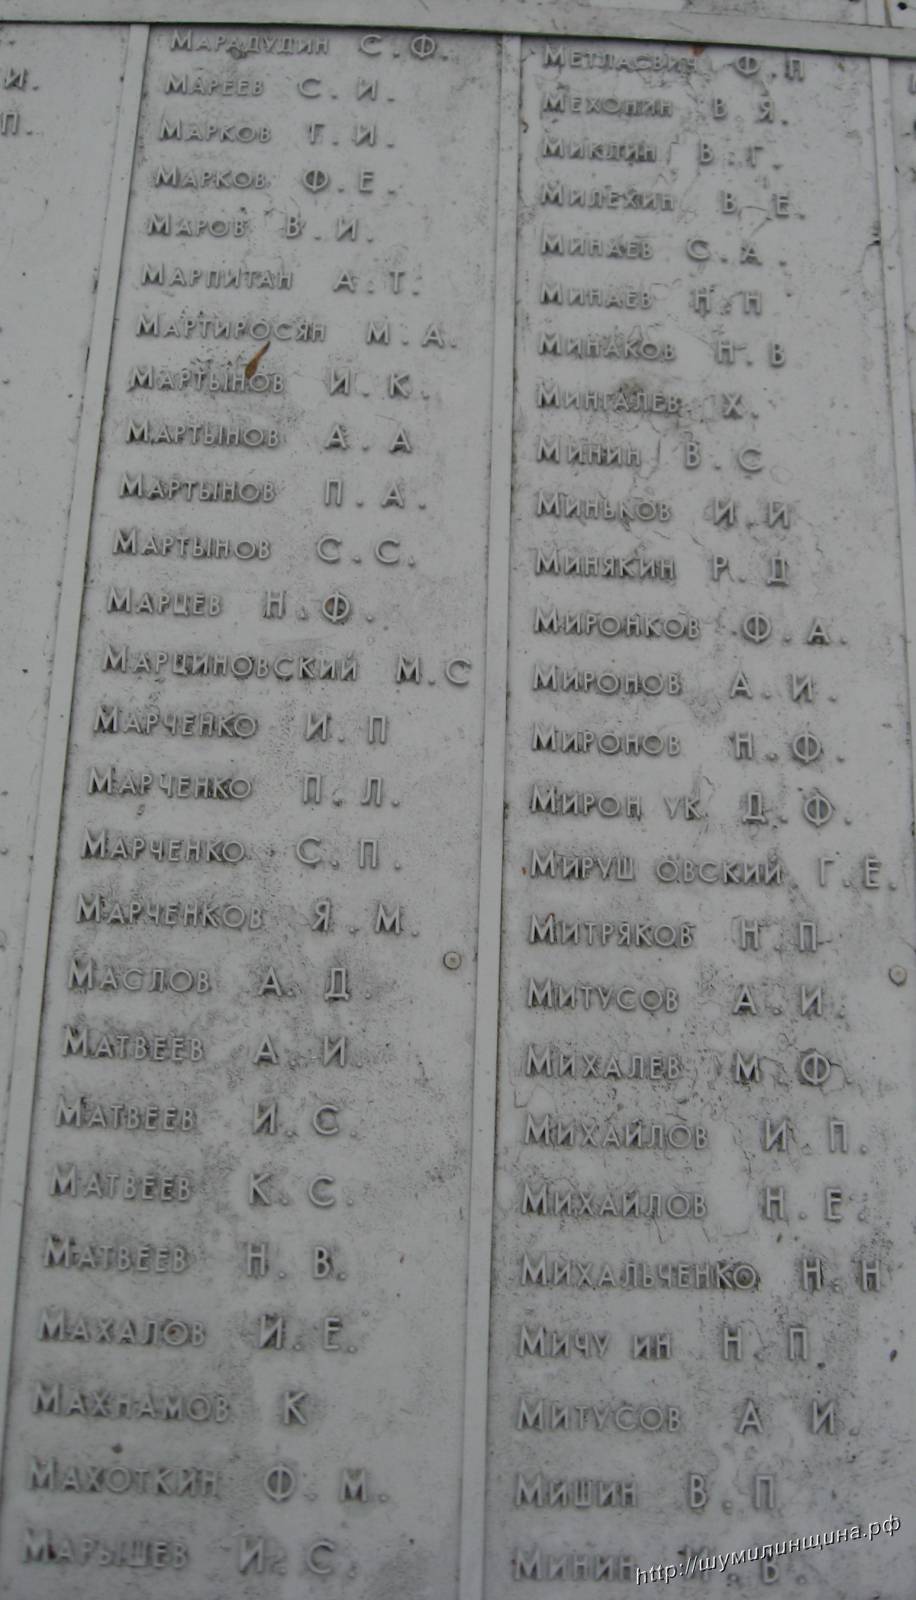 И.
П.
Марадудин С.Ф.
Мареев С.И.
Марков Г.И.
Марков Ф.Е.
Маров В.И.
Марпитан А.Т.
Мартиросян М.А.
Мартынов И.К.
Мартынов А.А
Мартынов П.А.
Мартынов С.С.
Марцев Н.Ф.
Марциновский М.С
Марченко И.П
Марченко П.Л.
Марченко С.П.
Марченков Я.М.
Маслов А.Д.
Матвеев А.И.
Матвеев И.С.
Матвеев К.С.
Матвеев Н.В.
Махалов И.Е.
Махнамов К
Махоткин Ф.М.
Марышев И.С.
Метласвич Ф.П
Мехонин В.Я.
Миклин В.Г.
Милехин В.Е.
Минаев С.А.
Минаев Н.Н
Минаков Н.В
Мингалев Х.
Минин В.С
Миньков И.И
Минякин Р.Д
Миронков Ф.А.
Миронов А.И.
Миронов Н.Ф.
Мирон ук Д.Ф.
Мируш овский Г.Е.
Митряков Н.П
Митусов А.И.
Михалев М.Ф.
Михайлов И.П.
Михайлов Н.Е.
Михальченко Н.Н
Мичу ин Н.П.
Митусов А И.
Мишин В.П
Минин И.В.
http://шумилинщина.рф